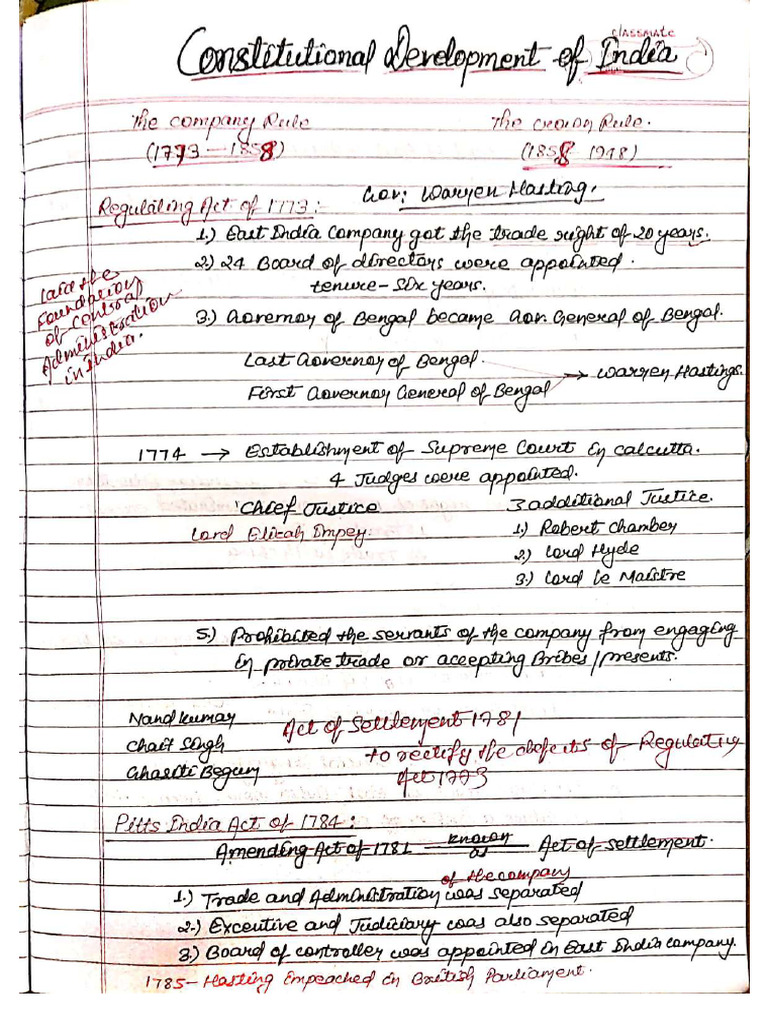 classmate
Constitutional Development of India
The Company Rule The Crown Rule.
(1773 - 1858) (1858 1948)
Regulating Act of 1773:- Gov: Warren Hasting.
1.) East India Company got the trade right of 20 years.
2.) 24 Board of directors were appointed.
tenure - Six years.
Laid the
foundation
of central
Administration
in India.
3.) Governor of Bengal became Gov. General of Bengal.
Last Governor of Bengal.
First Governor General of Bengal → Warren Hastings.
1774 → Establishment of Supreme Court in Calcutta.
4 Judges were appointed.
'Chief Justice 3 additional Justice.
Lord Elizah Impey. 1) Robert Chamber
2) Lord Hyde
3.) Lord Le Maistre
5.) Prohibited the servants of the company from engaging
in private trade or accepting Bribes/presents.
Nand Kumar Act of Settlement 1781
Chait Singh to rectify the defects of Regulating
Ghasiti Begum Act 1773
Pitts India Act of 1784:
Amending Act of 1781 known as Act of settlement.
of the company
1.) Trade and Administration was separated
2.) Exceutive and Judiciary was also separated
3.) Board of controller was appointed in East India Company.
1785 - Hasting Impeached in British Parliament.